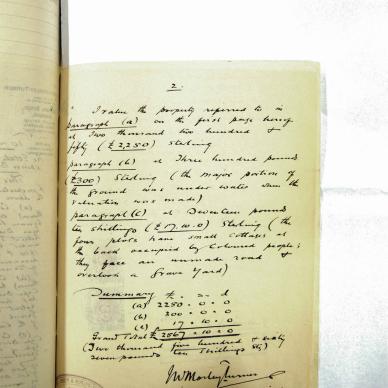 2.
I value the property referred to in
paragraph (a) on the first page hereof
at Two thousand two hundred &
fifty (£2,250) Sterling
paragraph (b) at Three hundred pounds
(£300) Sterling (the major portion of
the ground was under water when the
valuation was made)
paragraph (c) at Seventeen pounds
ten shillings (£17.10.0) Sterling (the
four plots have small cottages at
the back occupied by Coloured people;
they face an unmade road &
overlook a Grave Yard)
Summary £ s. d
(a) 2250 . 0 . 0
(b) 300 . 0 . 0
(c) 17 . 10 . 0
Grand Total £2567 . 10 . 0
(Two thousand five hundred & sixty
seven pounds ten Shillings Stg)